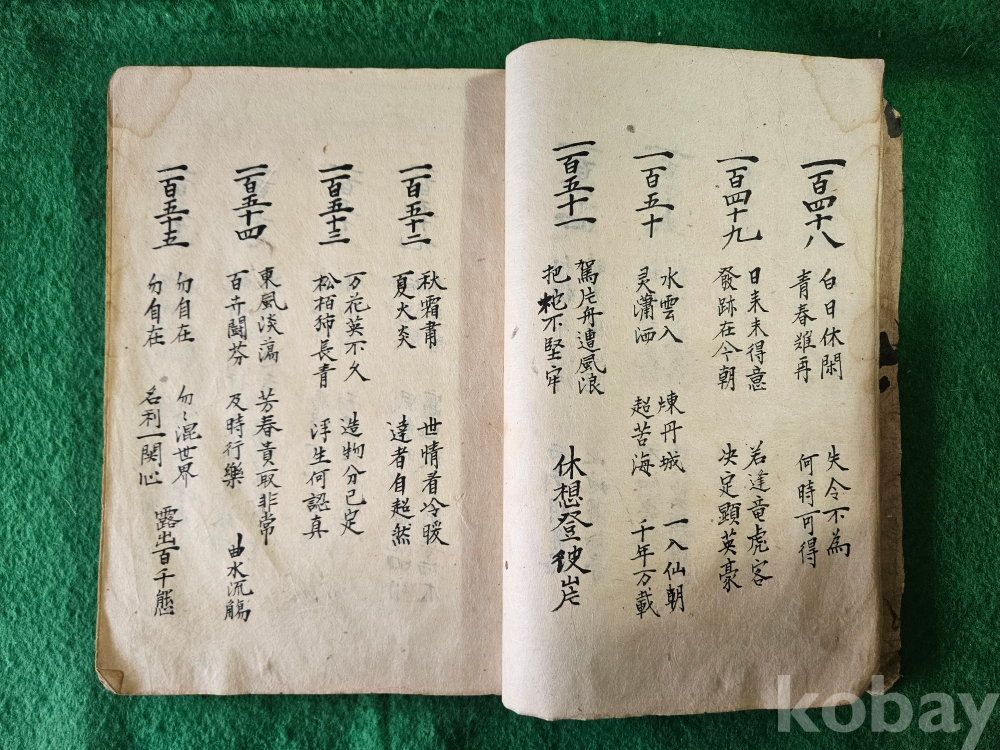 一百四十八
白日休閑 失今不為
青春难再 何時可得
一百四十九
日来未得意 若逢竜虎客
發跡在今朝 决定顯英豪
一百五十
水雲入 煉丹城 一入仙朝
灵瀟洒 超苦海 千年万載
一百五十一
駕片舟遭風浪
把柁不堅牢
休想登彼岸
一百五十二
秋霜肅 世情看冷暖
夏火炎 達者自超然
一百五十三
万花英不久 造物分已定
松柏長青 浮生何認真
一百五十四
東風淡蕩 芳春貴取非常
百卉闘芬 及時行樂 曲水流觴
一百五十五
勿自在 勿〻混世界
勿自在 名利一関心 露出百千態
kobay